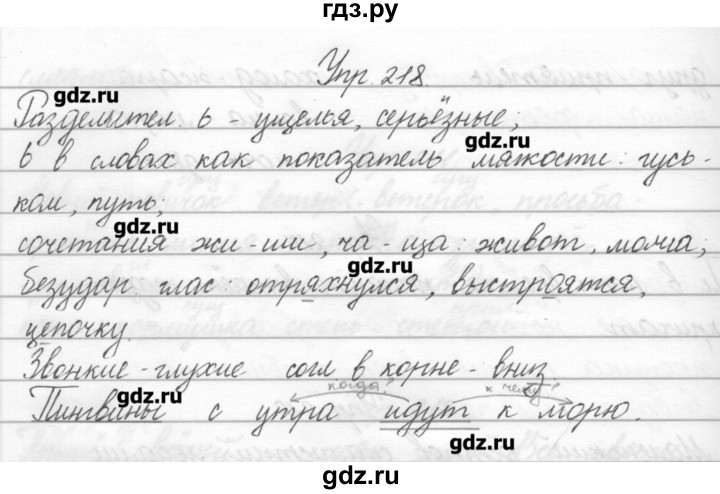 гдз.ру
Упр. 218.
gdz.ru
Разделител. ь - ущелья, серьёзные;
gdz.ru
ь в словах как показатель мягкости: гусь-
ком, путь;
gdz.ru
сочетания жи-ши, ча-ща: живот, молча;
gdz.ru
безудар. глас: отряхнулся, выстроятся,
цепочку.
Звонкие-глухие согл в корне - вниз.
когда? к чему?
gdz.ru
Пингвины с утра идут к морю.
gdz.ru
gdz.ru